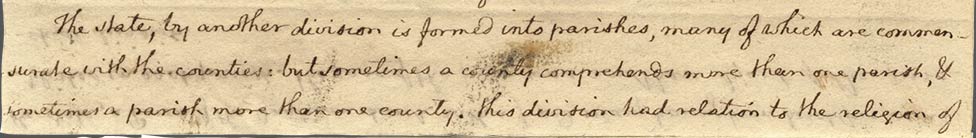 The state, by another division is formed into parishes, many of which are commen-
surate with the counties: but sometimes a county comprehends more than one parish, &
sometimes a parish more than one county. this division had relation to the religion of